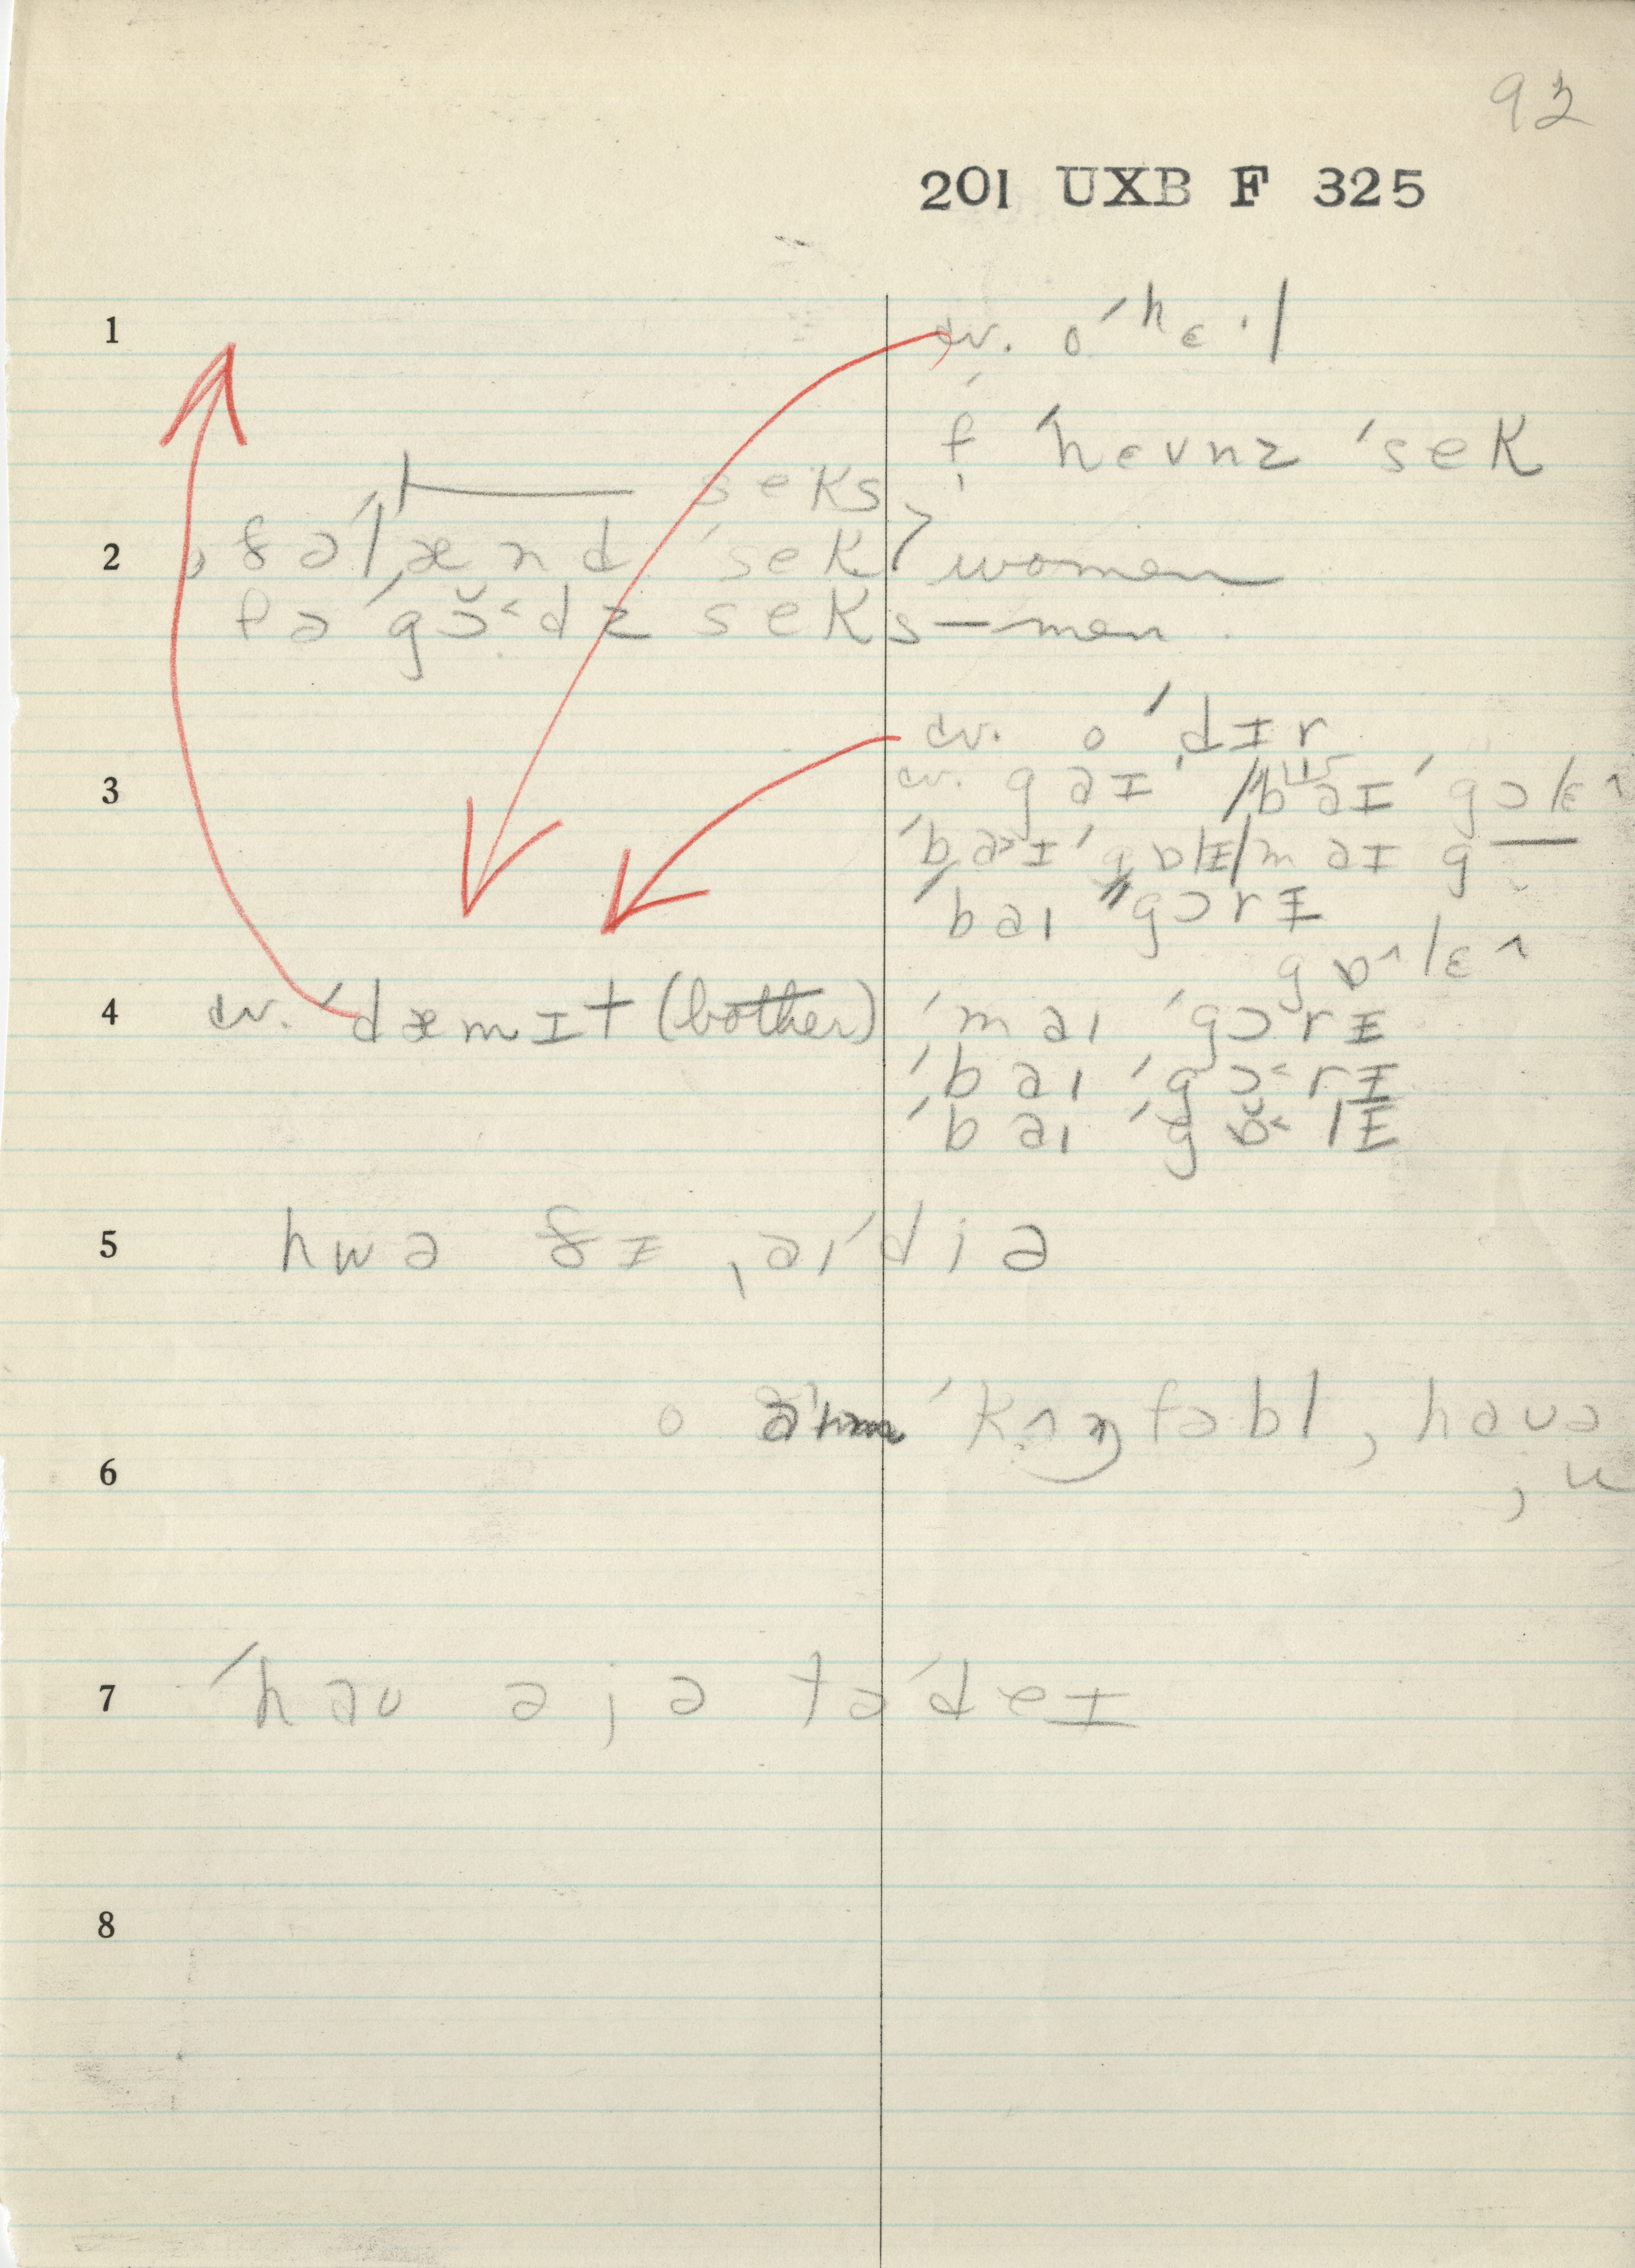 92
201 UXB F 325
1
cv. o ˈhɛ·l
f ˈhɛvnz ˈsek
seks
2
ˌfəˈlænd ˈsek women
fəˈgɔ̆˂dz seks — men
cv. o ˈdɪr
3
cv. gəɪ / bəɪ ˈgɔlɛ^
ˈbə>ɪ ˈgɒlɪ / məɪ g —
ˈbaɪ ˈgɔrɪ
gɒ^lɛ^
4
cv. ˈdæmɪt (bother)
ˈmaɪ ˈgɔrɪ
ˈbaɪ ˈgɔ˂rɪ
ˈbaɪ ˈgɒ̆˂lɪ
5
hwə ðɪ ˌaɪˈdiə
o ˈkʌɱfəbl, haʊə
6
ˌu
7
ˈhaʊ əjə təˈdeɪ
8